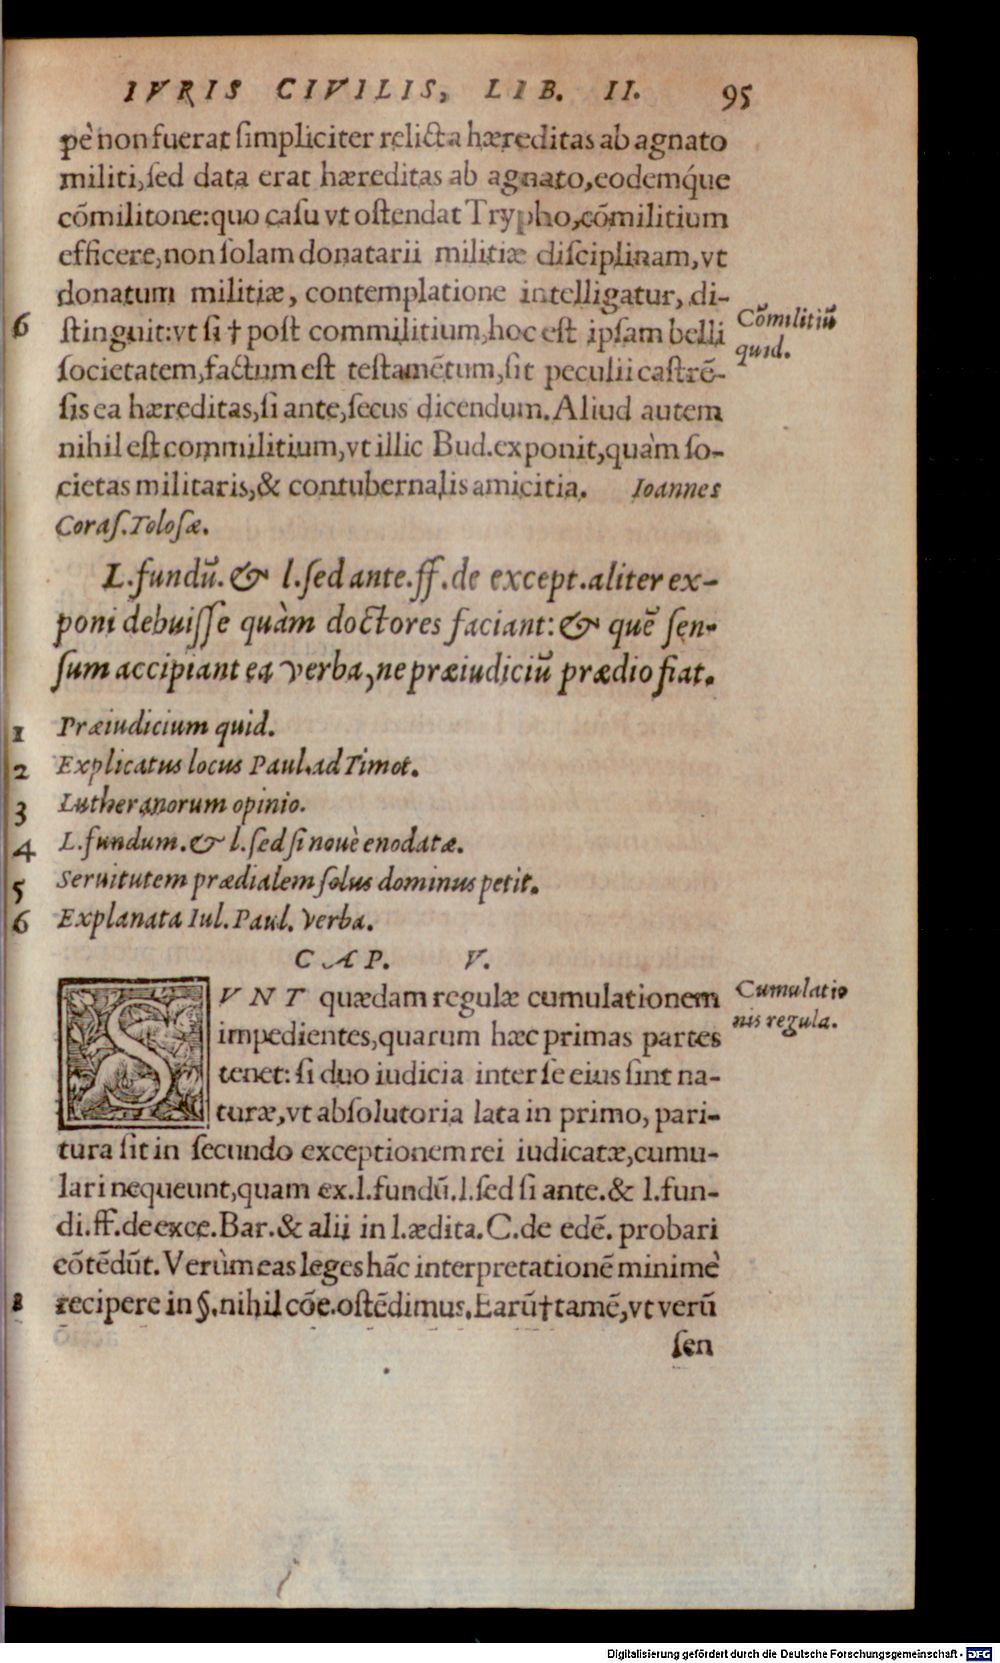 IVRIS CIVILIS, LIB. II. 95
pè non fuerat ſimpliciter relicta hæreditas ab agnato
militi, ſed data erat hæreditas ab agnato, eodemq́ue
cõmilitone: quo caſu vt oſtendat Trypho, cõmilitium
efficere, non ſolam donatarii militiæ diſciplinam, vt
donatum militiæ, contemplatione intelligatur, di-
6 ſtinguit: vt ſi † poſt commilitium, hoc eſt ipſam belli
Cõmilitiũ
quid.
ſocietatem, factum eſt teſtamẽtum, ſit peculii caſtrẽ-
ſis ea hæreditas, ſi ante, ſecus dicendum. Aliud autem
nihil eſt commilitium, vt illic Bud. exponit, quàm ſo-
cietas militaris, & contubernalis amicitia. Ioannes
Coraſ. Toloſæ.
L. fundũ. & l. ſed ante. ff. de except. aliter ex-
poni debuiſſe quàm doctores faciant: & quẽ ſen-
ſum accipiant ea verba, ne præiudiciũ prædio fiat.
1 Præiudicium quid.
2 Explicatus locus Paul. ad Timot.
3 Lutheranorum opinio.
4 L. fundum. & l. ſed ſi nouè enodatæ.
5 Seruitutem prædialem ſolus dominus petit.
6 Explanata Iul. Paul. verba.
CAP. V.
SVNT quædam regulæ cumulationem
Cumulatio
nis regula.
impedientes, quarum hæc primas partes
tenet: ſi duo iudicia inter ſe eius ſint na-
turæ, vt abſolutoria lata in primo, pari-
tura ſit in ſecundo exceptionem rei iudicatæ, cumu-
lari nequeunt, quam ex. l. fundũ. l. ſed ſi ante. & l. fun-
di. ff. de exce. Bar. & alii in l. ædita. C. de edẽ. probari
cõtẽdũt. Verùm eas leges hãc interpretationẽ minimè
recipere in §. nihil cõe. oſtẽdimus. Earũ † tamẽ, vt verũ
ſen
Digitalisierung gefördert durch die Deutsche Forschungsgemeinschaft - DFG